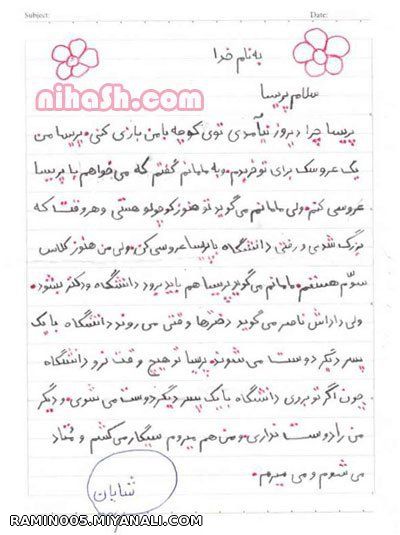 Subject:
Date:
به نام خدا
nihash.com
سلام پریسا
پریسا چرا دیروز نیآمدی توی کوچه با من بازی کنی. پریسا من
یک عروسک برای تو خریدم. و به مامانم گفتم که می‌خواهم با پریسا
عروسی کنم. ولی مامانم می‌گوید تو هنوز کوچولو هستی و هر وقت که
بزرگ شدی و رفتی دانشگاه با پریسا عروسی کن. ولی من هنوز کلاس
سوّم هستم. مامانم می‌گوید پریسا هم باید برود دانشگاه و دکتر بشود.
ولی داداش ناصر می‌گوید دخترها وقتی می‌روند دانشگاه با یک
پسر دیگر دوست می‌شوند. پریسا تو هیچ وقت نرو دانشگاه
چون اگر تو بری دانشگاه با یک پسر دیگر دوست می‌شوی. و دیگر
من را دوست نداری. و من هم میروم سیگار می‌کشم و مُتاد
می‌شوم و می‌میرم.
شایان
RAMIN005.MIYANALI.COM